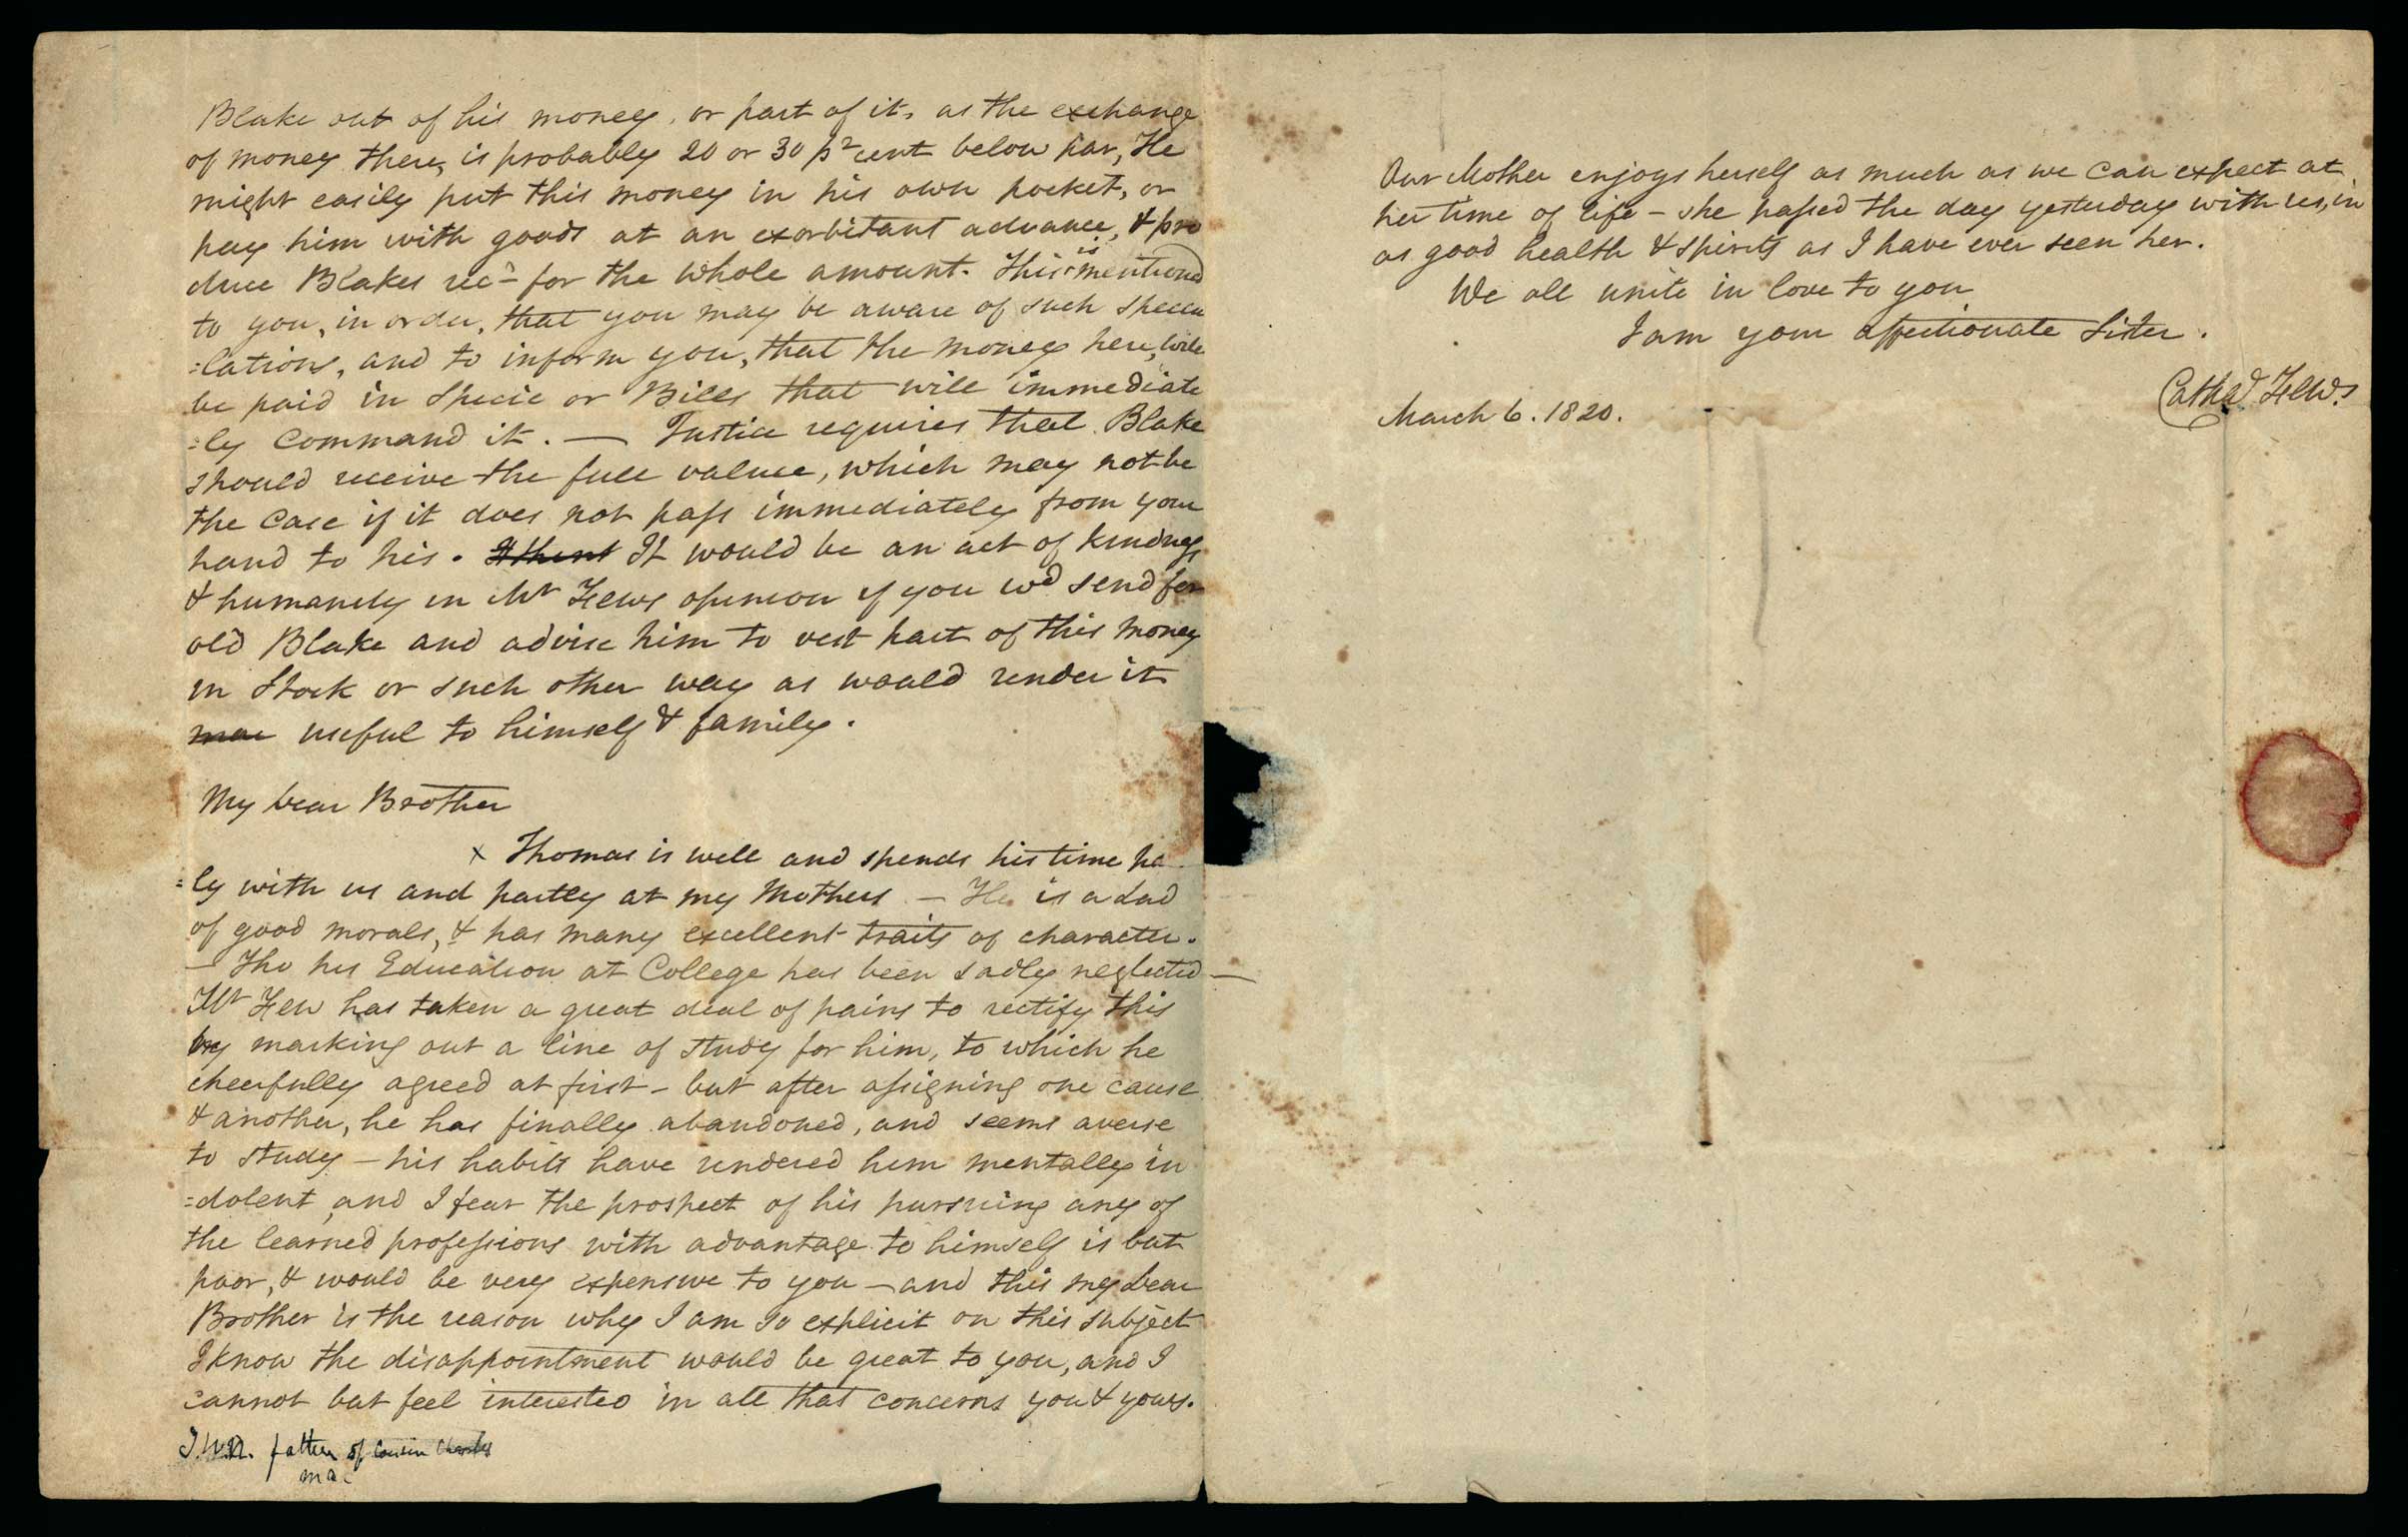 Blake out of his money, or part of it, as the exchange
of money there, is probably 20 or 30 pr cent below par, He
might easily put this money in his own pocket, or
pay him with goods at an exorbitant advance, & pro
duce Blakes rect for the whole amount. This is mentioned
to you, in order, that you may be aware of such specu
=lations, and to inform you, that the money here, will
be paid in Specie or Bills that will immediate
=ly command it. — Justice requires that Blake
should receive the full value, which may not be
the case if it does not pass immediately from your
hand to his. It would be an act of kindness
& humanity in Mr Fews opinion if you wd send for
old Blake and advise him to vest part of this money
in Stock or such other way as would render it
useful to himself & family.
My dear Brother
x Thomas is well and spends his time pa
=ly with us and partly at my Mothers — He is a Lad
of good morals, & has many excellent traits of character.
— Tho his Education at College has been sadly neglected —
Mr Few has taken a great deal of pains to rectify this
by marking out a line of study for him, to which he
cheerfully agreed at first – but after assigning one cause
& another, he has finally abandoned, and seems averse
to study – his habits have rendered him mentally in
=dolent, and I fear the prospect of his pursuing any of
the learned professions with advantage to himself is but
poor, & would be very expensive to you – and this my dear
Brother is the reason why I am so explicit on this subject
I know the disappointment would be great to you, and I
cannot but feel interested in all that concerns you & yours.
father of Cousin Charles
Our Mother enjoys herself as much as we can expect at
her time of life – she passed the day yesterday with us, in
as good health & spirits as I have ever seen her.
We all unite in love to you
I am your affectionate Sister.
Catha Few
March 6. 1820.